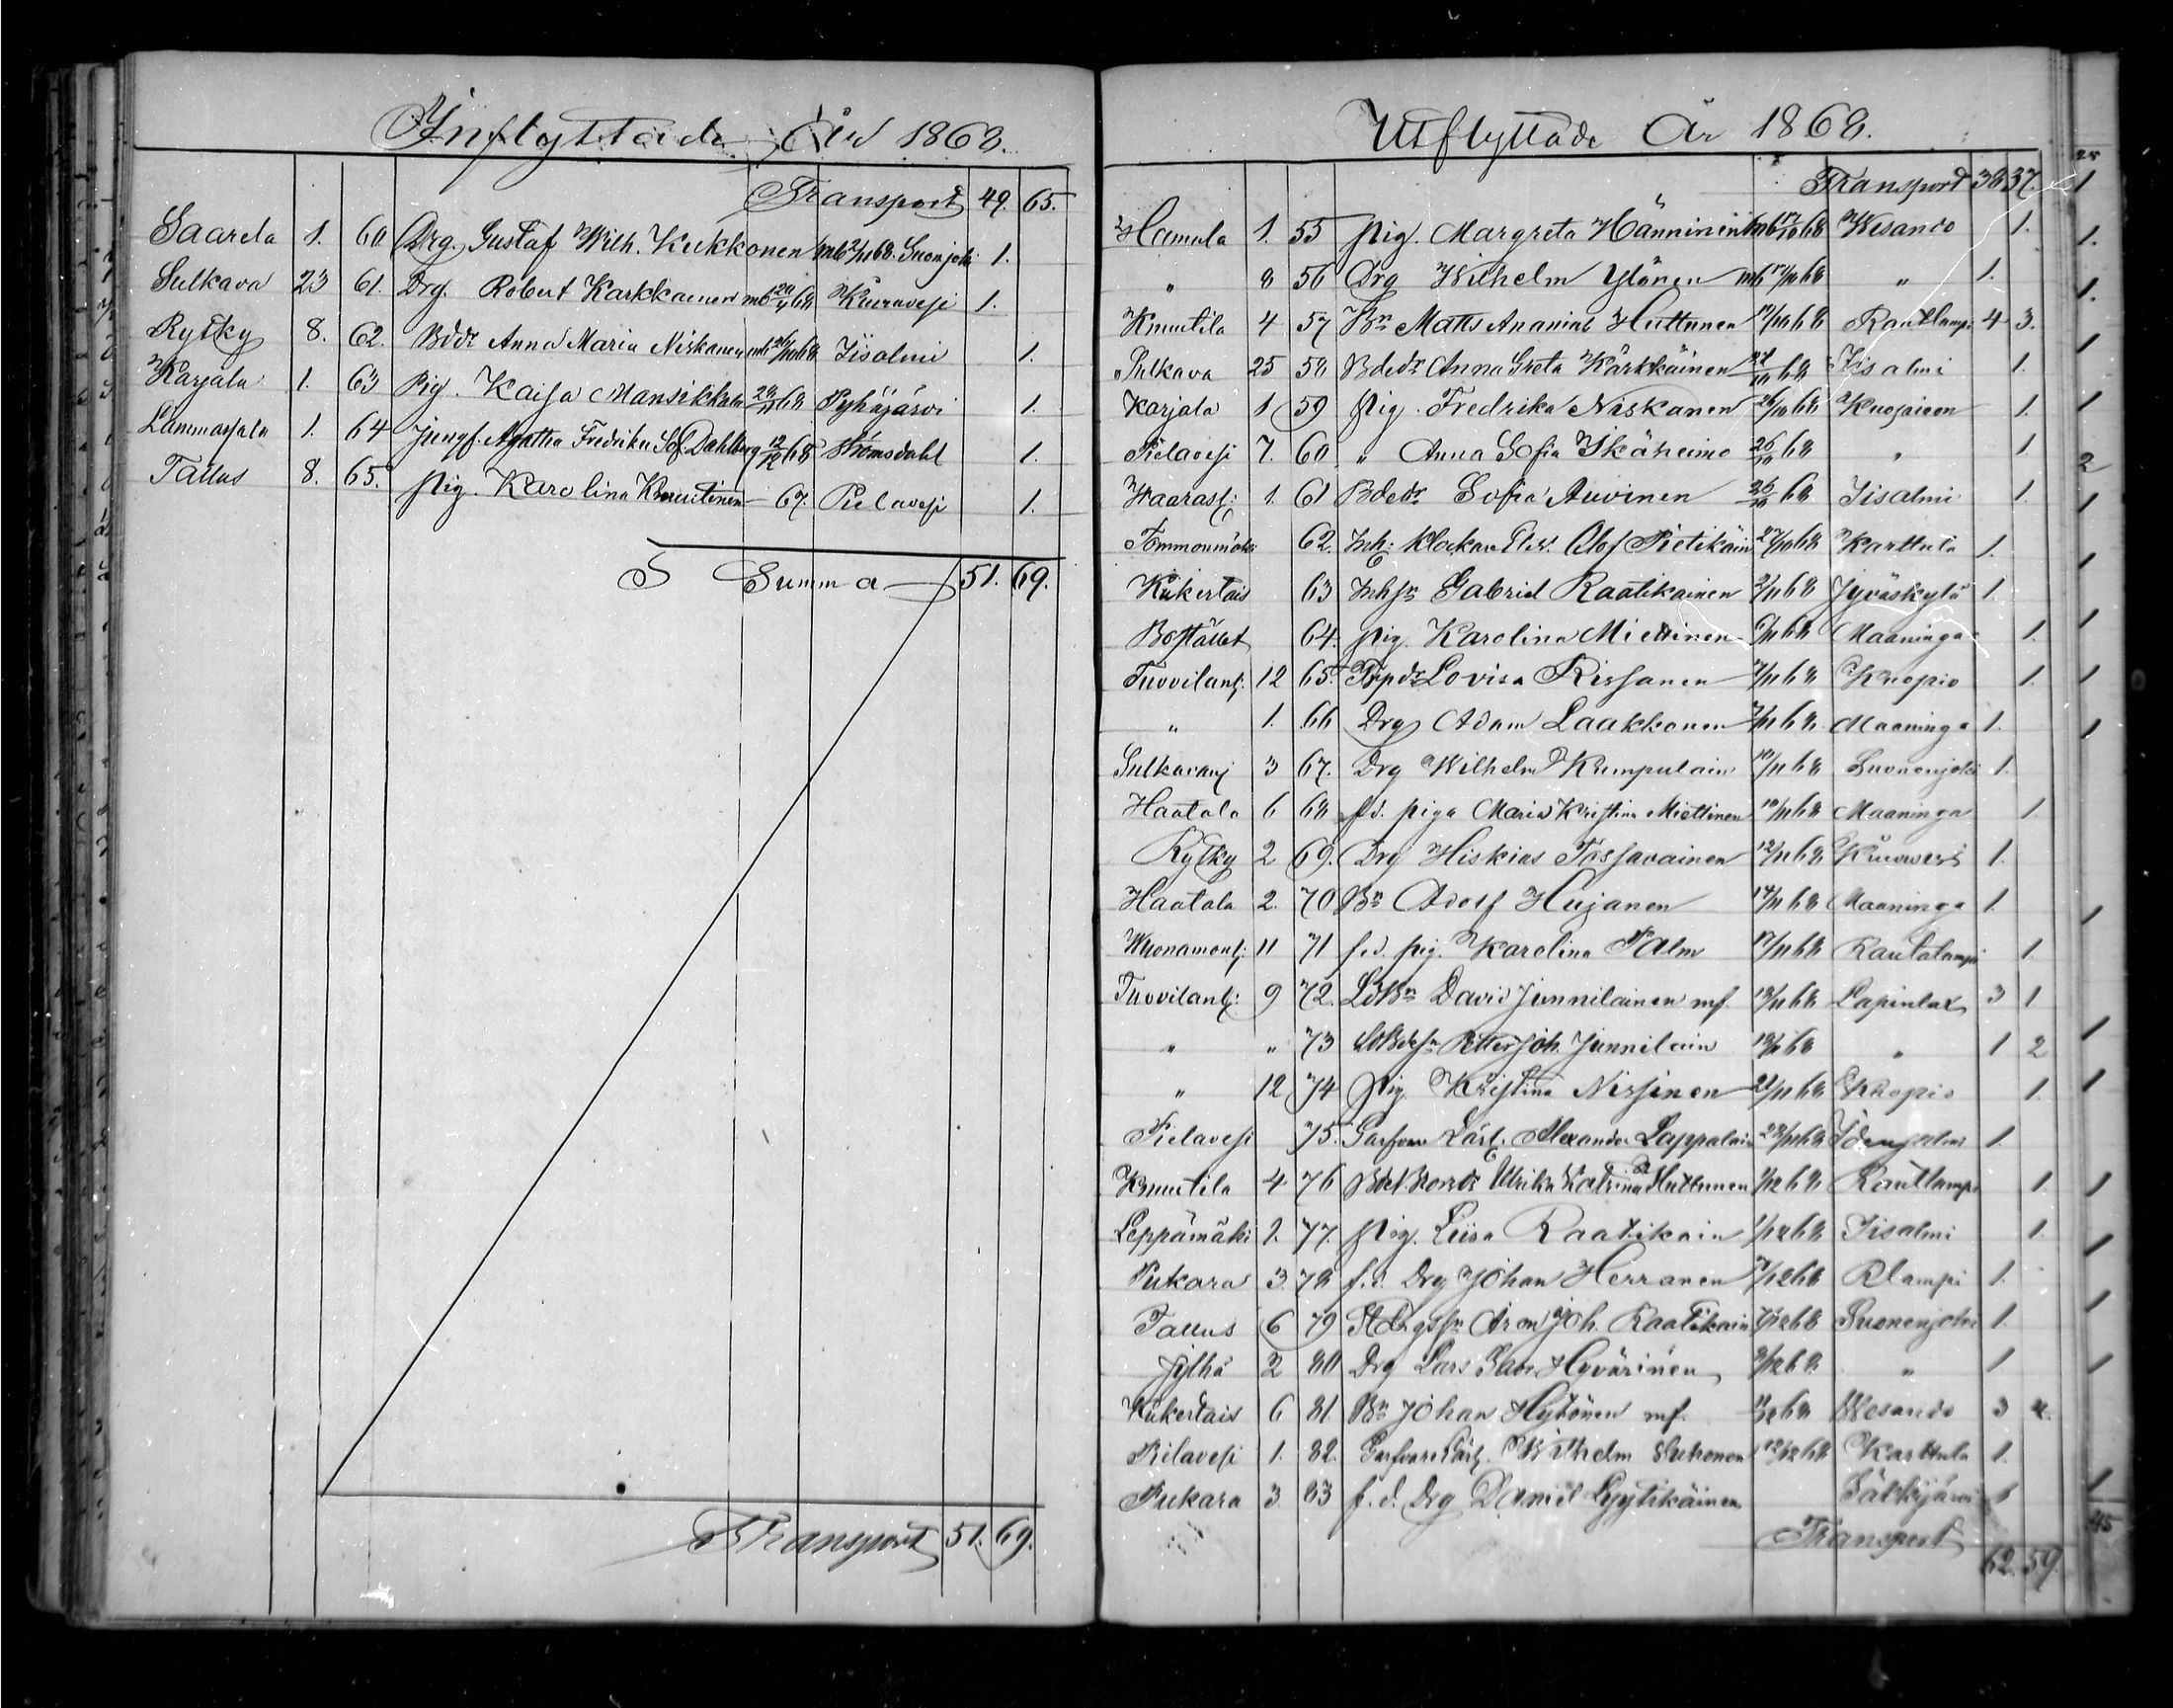 Inflyttade År 1868.
Transport 49. 65.
Saarela 1. 60 Drg. Gustaf Wilh. Kukkonen mb 2/11 68. Suonjoki 1.
Sulkava 23 61. Drg. Robert Karkkainen mb 68 Kiuruvesi 1.
Rytky 8. 62. Bddr Anna Maria Niskanen mb 68 Iisalmi 1.
Karjala 1. 63 Pig. Kaisa Mansikka 68 Pyhäjärvi 1.
Lammasjala 1. 64 Jungf. Agatha Fredrika Sof. Dahlberg 12/12 68 Strömsdahl 1.
Tallus 8. 65. pig. Karolina Knuutinen — 67. Pielavesi 1.
Summa 51. 69.
Transport 51. 69.
Utflyttade År 1868.
Transport 38 37.
Hamula 1. 55 pig. Margreta Hänninen mb 68 Wesando 1.
" 8 56 Drg Wilhelm Ylönen mb 17/10 68 " 1.
Knuutila 4 57 Bn Matts Ananias Huttunen 17/10 68 Rautlampi 4 3.
Sulkava 25 58 Bdedr Anna Greta Kärkkäinen 68 Iisalmi 1.
Karjala 1 59 pig. Fredrika Niskanen 26/10 68 Kuopion 1.
Pielavesi 7. 60 " Anna Sofia Ikäheimo 26/10 68 " 1
Waarasl: 1. 61 Bdedr Sofia Auvinen 26/10 68 Iisalmi 1.
Tommonmäki 62. Inh: Klockare Elev. Olof Pietikäin 27/10 68 Karttula 1.
Kiukertais 63 Inhsn Gabriel Raatikainen 2/11 68 Jyväskylä 1.
Bostället 64. pig. Karolina Miettinen 6/11 68 Maaninga 1.
Tuovilanl: 12 65. Trpdr Lovisa Rissanen 7/11 68 Kuopio 1.
" 1. 66 Drg Adam Laakkonen 7/11 68 Maaninga 1.
Sulkavanj 3 67. Drg Wilhelm Kumpulain 10/11 68 Suonenjoki 1.
Haatala 6 68 fd. piga Maria Kristina Miettinen 10/11 68 Maaninga 1.
Rytky 2 69. Drg Hiskias Tossavainen 12/11 68 Kiuruvesi 1.
Haatala 2. 70 Bn Adolf Hujanen 14/11 68 Maaninga 1.
Wuonamonl: 11 71 f.d. pig. Karolina Palm 17/11 68 Rautalampi 1.
Tuovilanl: 9 72. LdBn David Junnilainen mf. 18/11 68 Lapinlax 3 1
" " 73 LdBdesn Petter Joh. Junnilain 18/11 68 " 1 2
" 12 74 pig Kristina Nissinen 21/11 68 Kuopio 1.
Pielavesi 75. Garfvare Lärl. Alexander Lappalain 28/11 68 Idensalmi 1.
Knuutila 4 76 Ulrika Katrina Huttunen 1/12 68 Rautlampi 1
Leppämäki 1. 77. pig. Liisa Raatikain 1/12 68 Iisalmi 1.
Pukara 3. 78 f.d. Drg Johan Herranen 7/12 68 Rlampi 1.
Tallus 6 79 Aron Joh. Raatikain 7/12 68 Suonenjoki 1.
Jylhä 2 80 Drg Lars Hyvärinen 9/12 68 " 1
Kiukertais 6 81. Bn Johan Hytönen mf. 68 Wesando 3
Pilavesi 1. 82. Garfvare Lärl. Wilhelm 12/12 68 Karttula 1.
Pukara 3 83 f.d. Drg Daniel Lyytikäinen Jälkijärvi 1
Transport
62. 59.